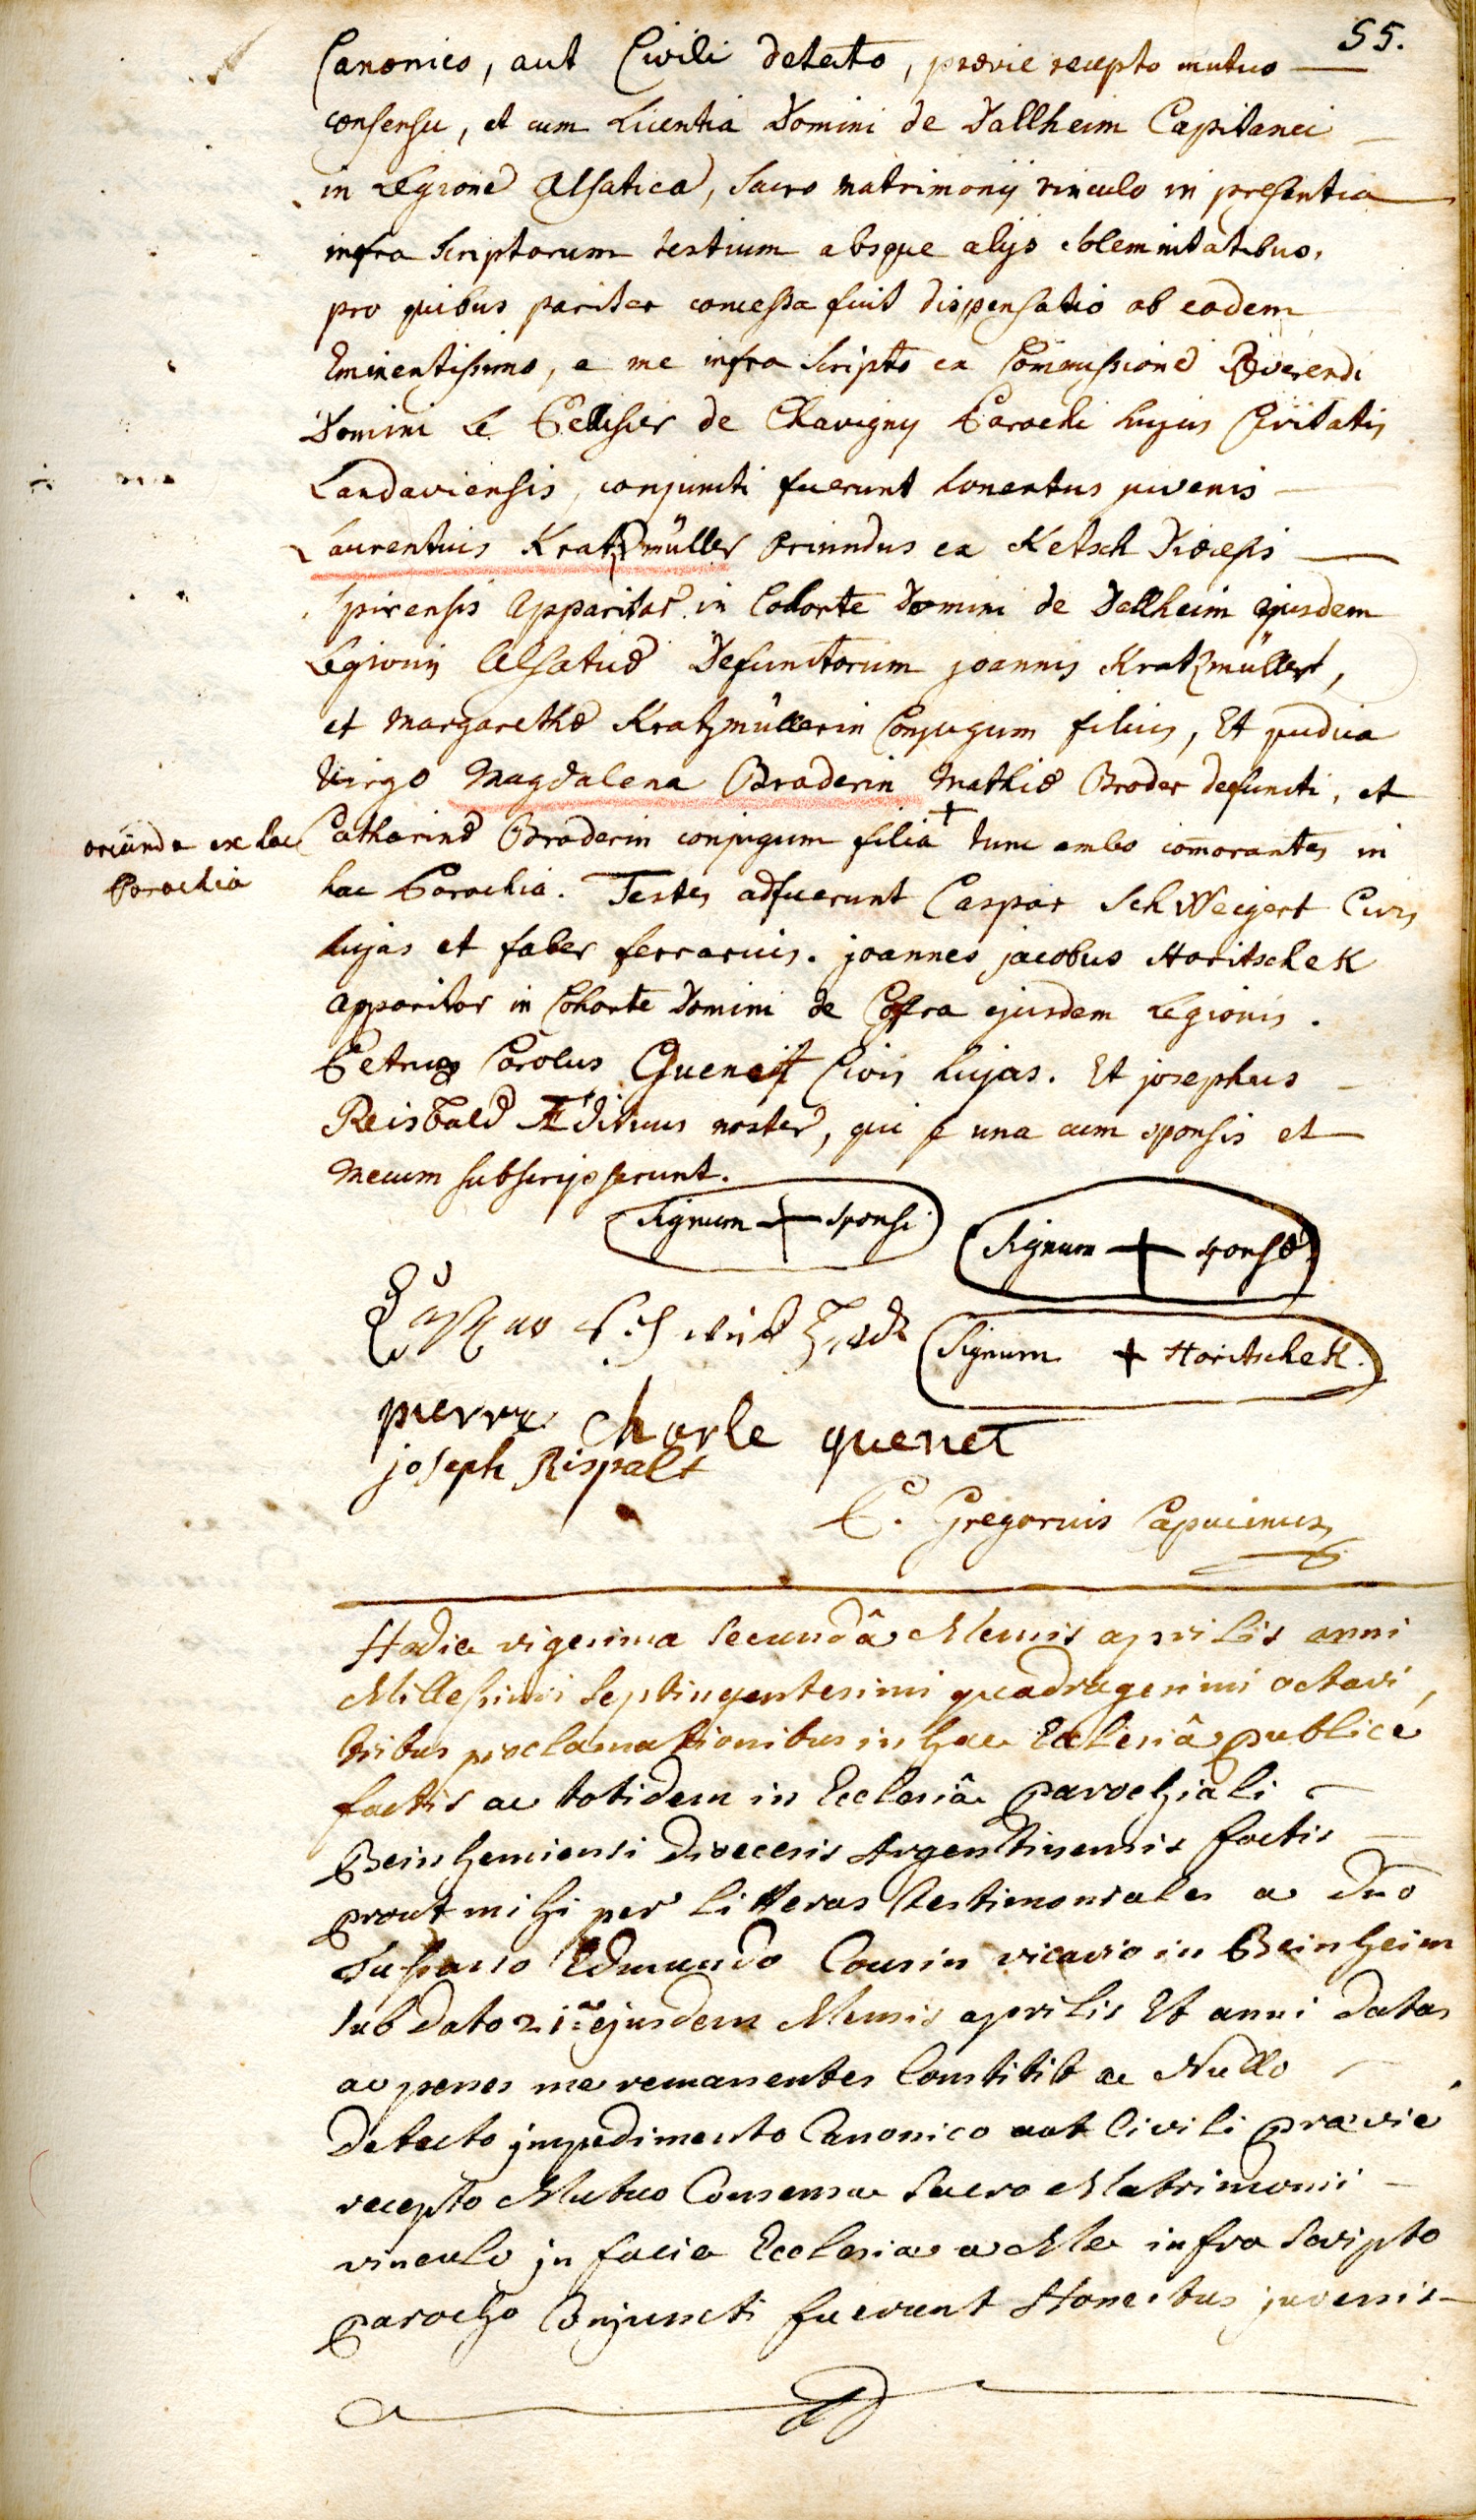 55.
Canonico, aut Civili detecto, prævie recepto mutuo
consensu, et cum Licentia Domini de Dallheim Capitanei
in Legione Alsatica, Sacro matrimonij vinculo in presentia
infra Scriptorum testium absque alijs solemnitatibus,
pro quibus pariter concessa fuit dispensatio ab eodem
Eminentissimo, a me infra Scripto ex Commissione Reverendi
Domini Le Pellisier de Chavigny Parochi hujus Civitatis
Landaviensis, conjuncti fuerunt honestus juvenis
Laurentius Kratzmüller Oriundus ex Ketsch Diœcesis
Spirensis Apparitor in Cohorte Domini de Dallheim ejusdem
Legionis Alsaticæ Defunctorum joannis Kratzmüller,
et Margarethæ Kratzmüllerin Conjugum filius, Et pudica
Virgo Magdalena Broderin Mathiæ Broder defuncti, et
Catharinæ Broderin conjugum filia + tunc ambo com̄orantes in
oriunda ex hac
Parochia
hac Parochia. Testes adfuerunt Caspar Schweigert Civis
hujas et faber ferrarius. joannes jacobus Horitschek
apparitor in Cohorte Domini de Coffra ejusdem Legionis.
Petrus Carolus Quenet Civis hujas. Et josephus
Reisbald Ædituus noster, qui se una cum sponsis et
mecum subscripserunt.
Signum + sponsi
Signum + sponsæ
Signum + Horitschek.
pierre charle quenet
joseph Rispalt
P. Gregorius Capucinus
Hodie vigesima Secundâ Mensis aprilis anni
Millesimi Septingentesimi quadragesimi octavi,
tribus proclamationibus in hac Ecclesiâ publice
factis ac totidem in Ecclesiâ parochiali
Beinhemiensi Diœcesis Argentinensis factis
prout mihi per litteras testimoniales a Dno
Edmundo Cousin vicario in Beinheim
sub dato 21mâ ejusdem Mensis aprilis Et anni datas
ac penes me remanentes Constitit ac Nullo
Detecto jmpedimento Canonico aut Civili prævie
recepto Mutuo Consensu Sacro Matrimonii
vinculo jn facie Ecclesiæ a Me infra Scripto
parocho Conjuncti fuerunt Honestus juvenis